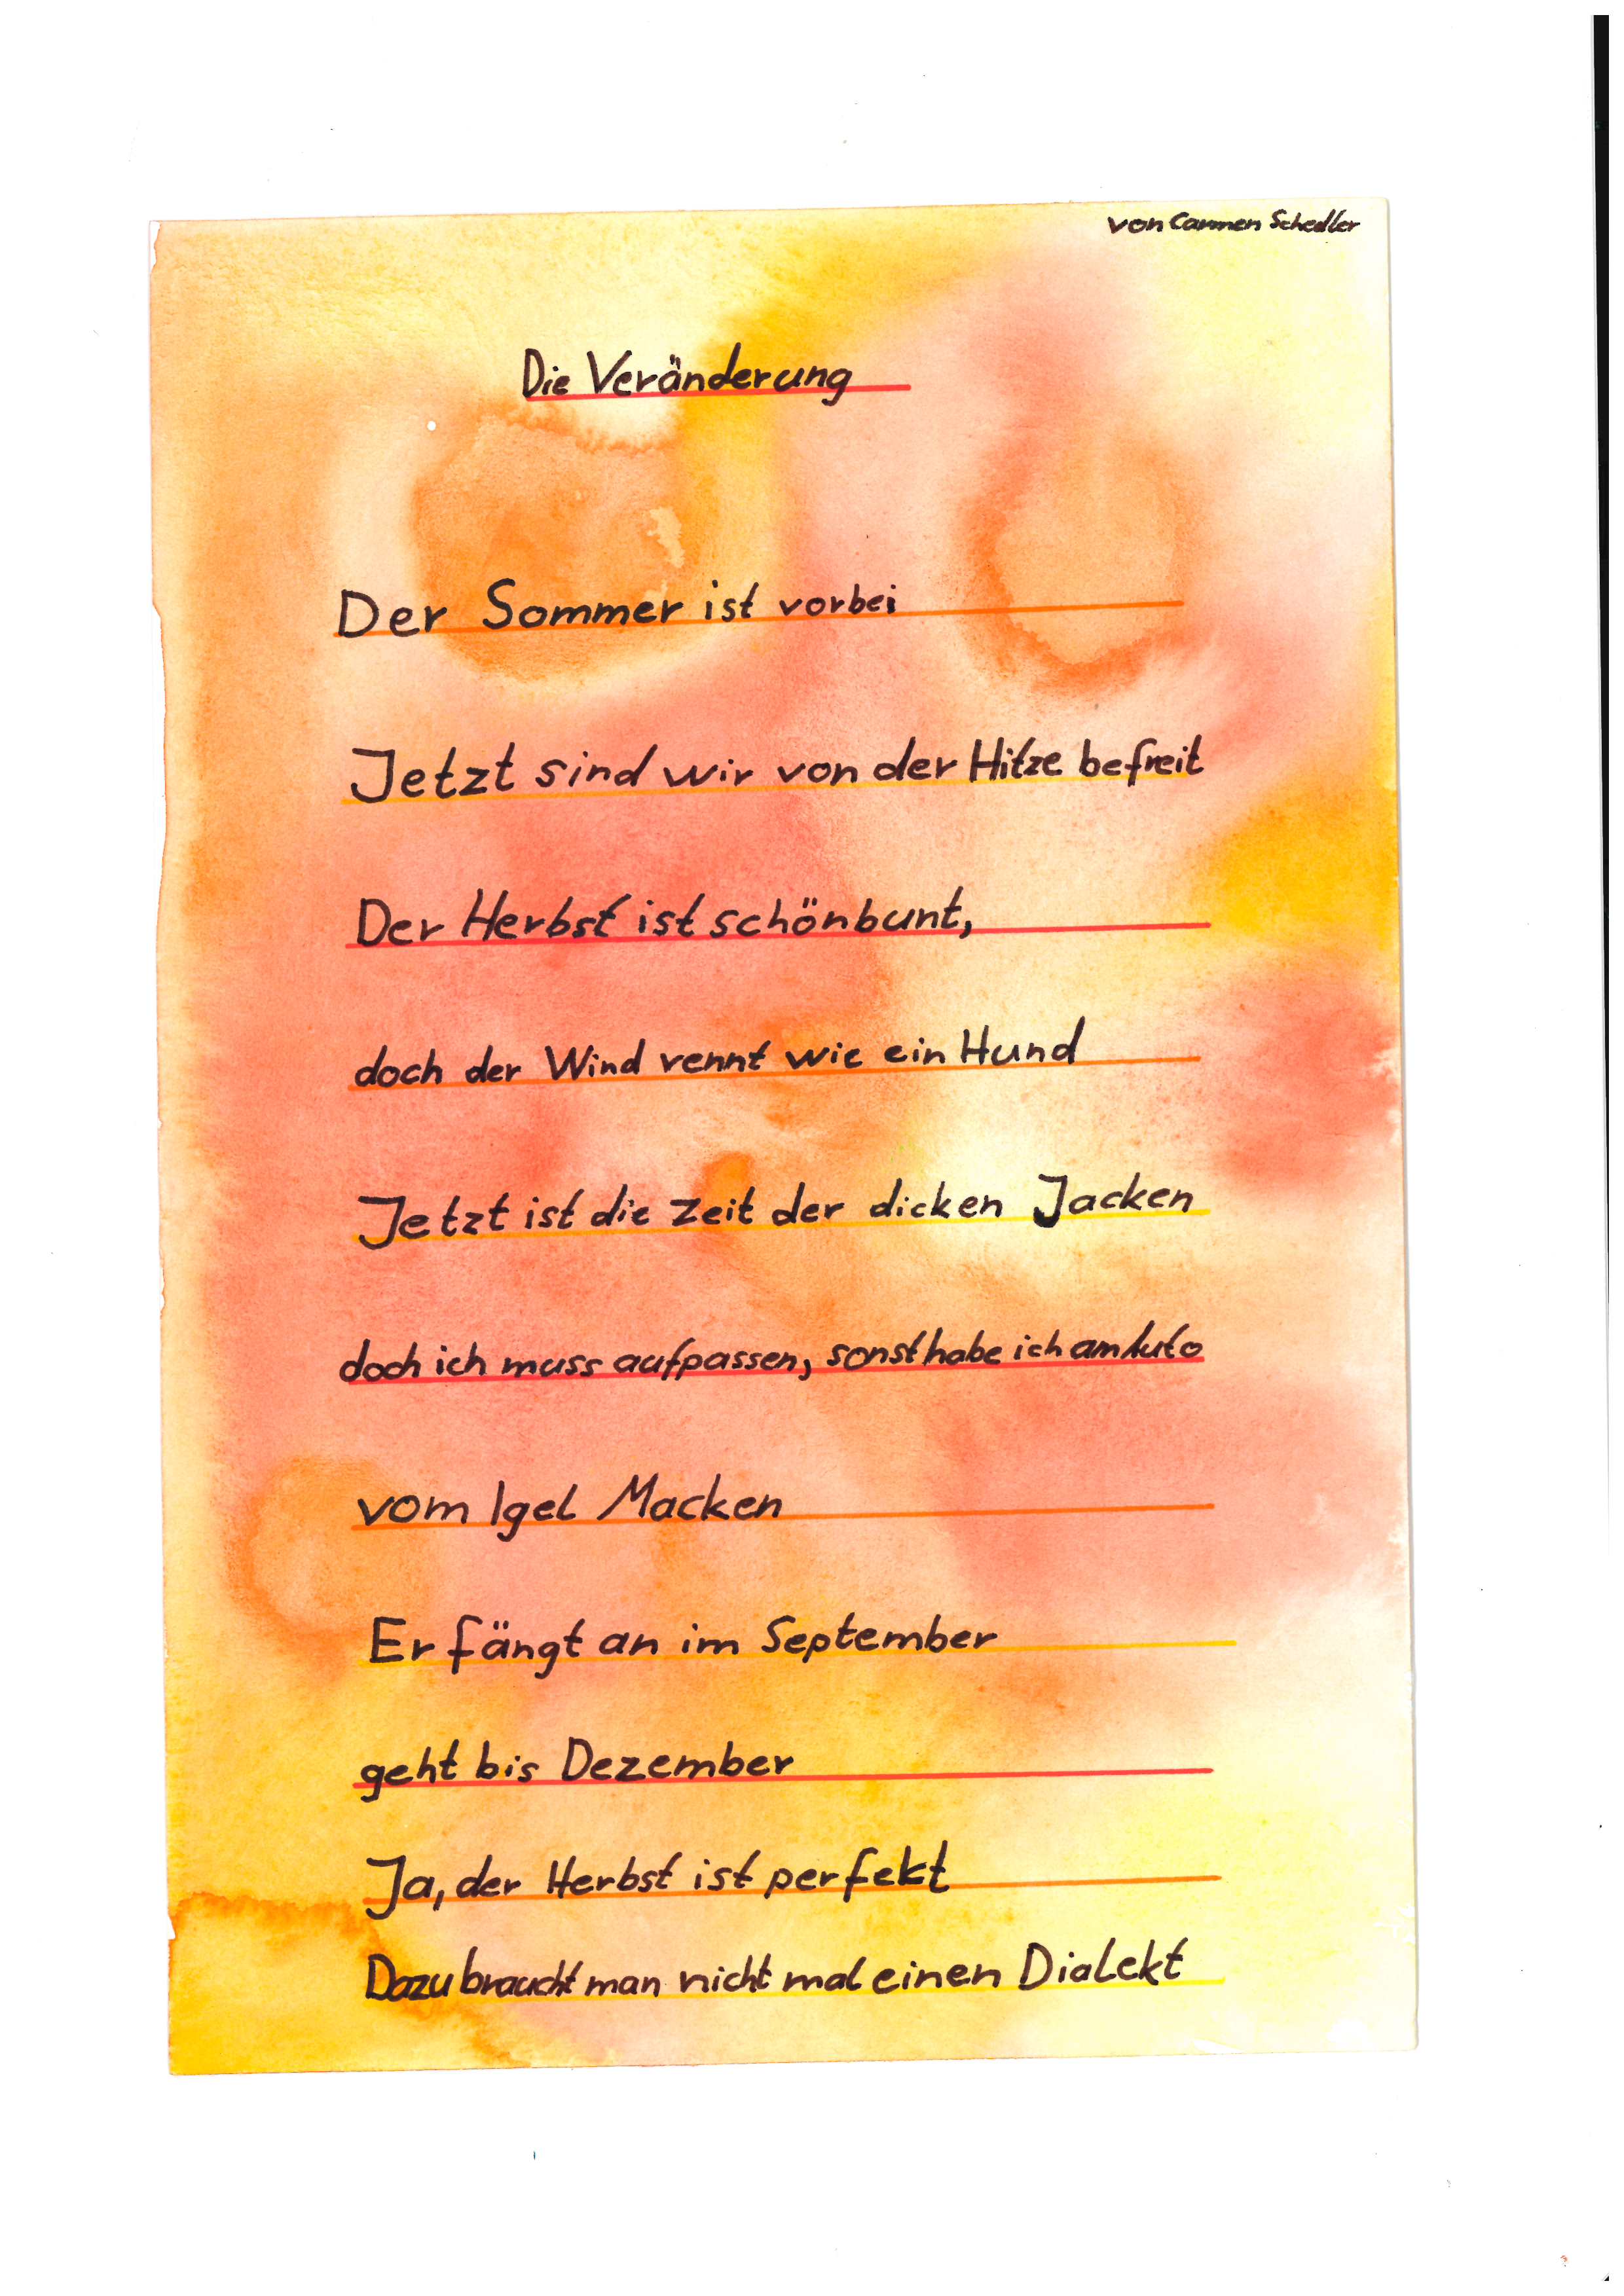 von Carmen Schedler
Die Veränderung
Der Sommer ist vorbei
Jetzt sind wir von der Hitze befreit
Der Herbst ist schön bunt,
doch der Wind rennt wie ein Hund
Jetzt ist die Zeit der dicken Jacken
doch ich muss aufpassen, sonst habe ich am Auto
vom Igel Macken
Er fängt an im September
geht bis Dezember
Ja, der Herbst ist perfekt
Dazu braucht man nicht mal einen Dialekt